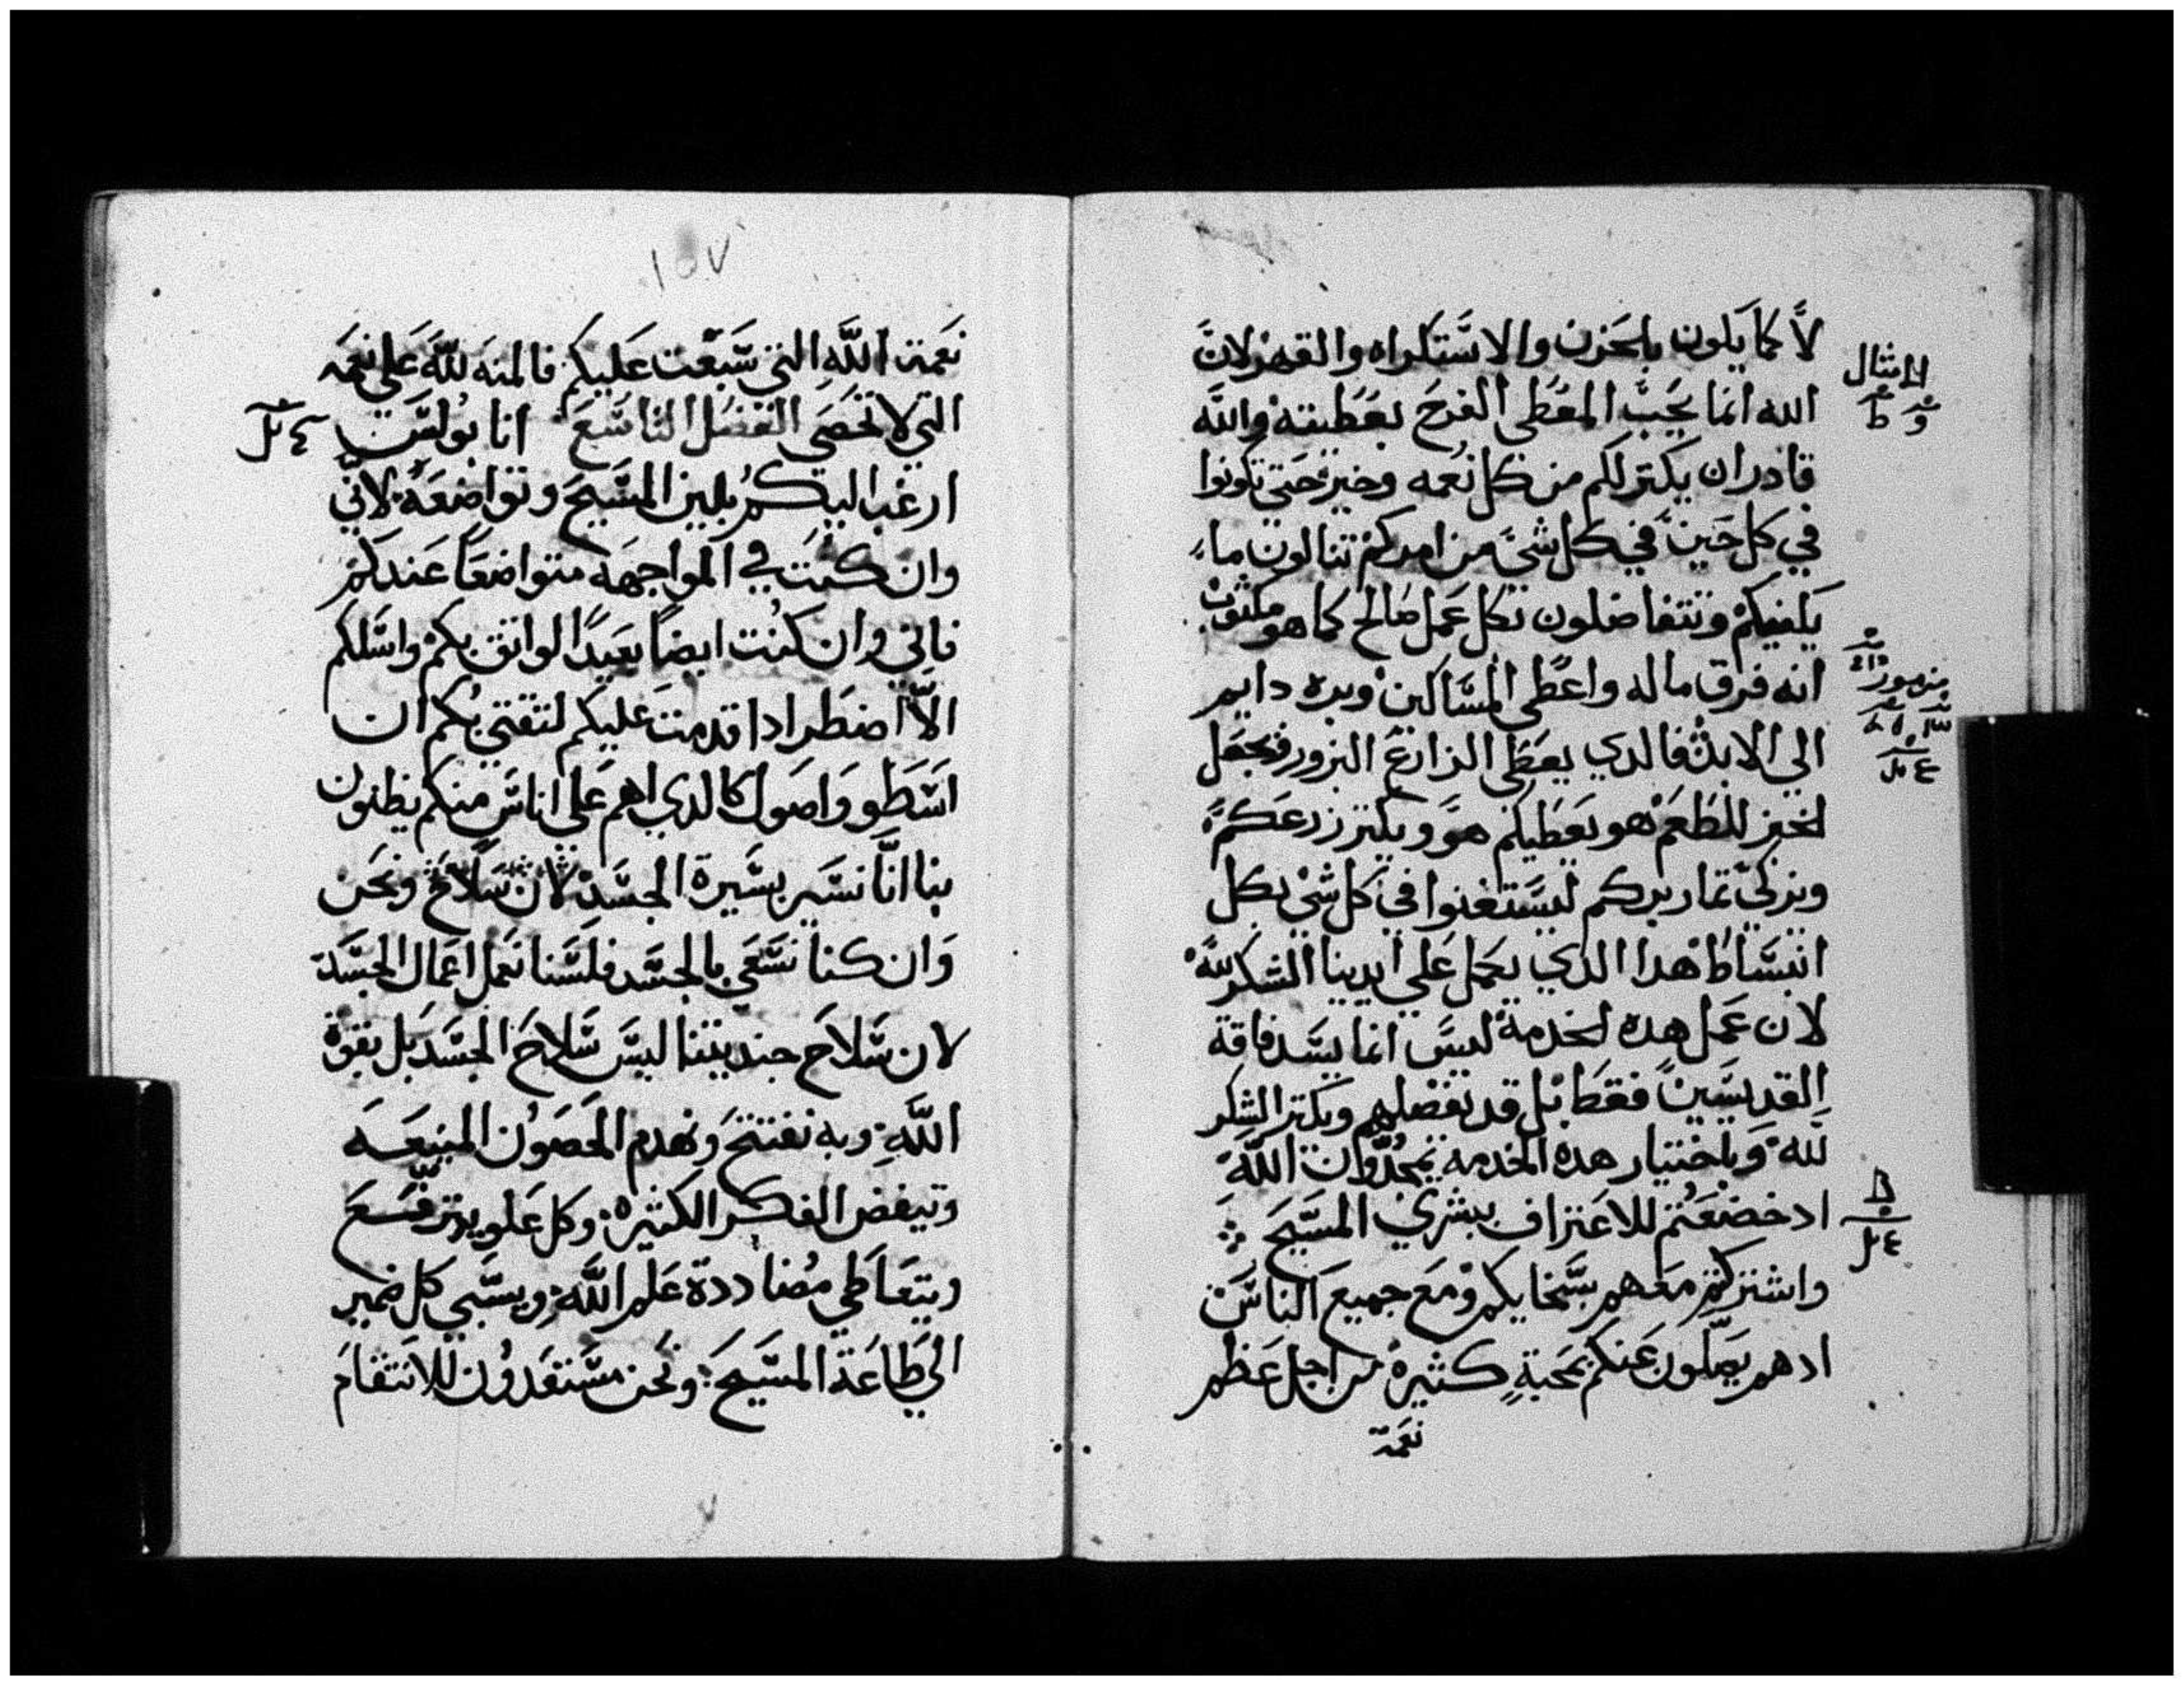 لا كما يكون بالحزن والاستكراه والقهر لان
الامثال
الله انما يحب المعطي الفرح بعطيته والله
قادر ان يكتر لكم من كل نعمه وخير حتي تكونوا
في كل حين في كل شي من امركم تنالون ما
يكفيكم وتتفاضلون بكل عمل صالح كما هو مكتوب
انه فرق ماله واعطي المساكين وبره دايم
مزمور
الي الابد فالدي يعطي الزارع البزور فيجعل
لخبز للطعم هو يعطيكم هو ويكتر زرعكم
ويزكي تمار بركم ليستغنوا في كل شي بكل
انبساط هدا الدي يحمل علي ايدينا الشكر لله
لان عمل هده الخدمة ليس انما يسد فاقة
القديسين فقط بل قد تفضلهم ويكتر الشكر
لله وباختيار هده الخدمه تمجدون الله
ادخضعتم للاعتراف ببشري المسيح
واشتركتم معهم بسخايكم ومع جميع الناس
ادهم يصلون عنكم بمحبة كثيرة من اجل عظم
نعمة
١٥٧
نعمة الله التي سبغت عليكم فالمنه لله علي نعمه
التي لا تحصي الفصل التاسع انا بولس
ارغب اليكم بلين المسيح وتواضعه لاني
وان كنت في المواجهه متواضعا عندكم
فاني وان كنت ايضا بعيدا لواتق بكم واسلكم
الا اضطر ادا قدمت عليكم لتقتي بكم ان
اسطو واصول كالدي اهم علي اناس منكم يظنون
بنا انا نسير بسيرة الجسد لان سلاح ونحن
وان كنا نسعي بالجسد فلسنا نعمل اعمال الجسد
لان سلاح جنديتنا ليس سلاح الجسد بل بقوة
الله وبه نفتتح ونهدم الحصون المنيعه
وتيفض الفكر الكثيره وكل علو يرتفع
ويتعاطي مضاددة علم الله ويسبي كل ضمير
الي طاعة المسيح ونحن مستعدون للانتقام